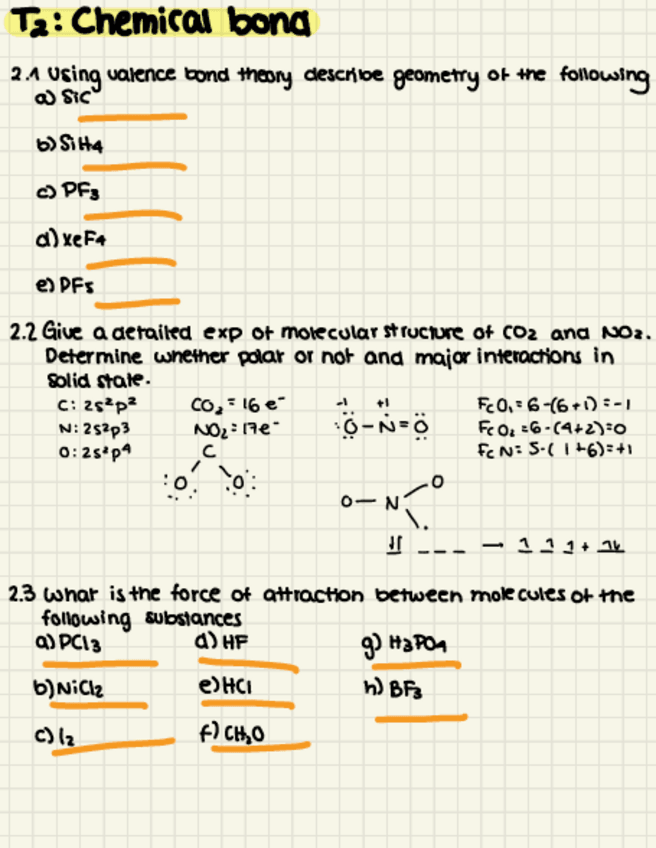 T2: Chemical bond
2.1 Using valence bond theory describe geometry of the following
a) SiC
b) SiH4
c) PF3
d) XeF4
e) PF5
2.2 Give a detailed exp of molecular structure of CO2 and NO2.
Determine whether polar or not and major interactions in
solid state.
C: 2s²p² CO2 = 16 e⁻ -1 +1 FcO1 = 6-(6+1) = -1
N: 2s²p3 NO2 = 17e⁻ :Ö-N=Ö FcO2 = 6-(4+2)=0
O: 2s²p⁴ C FcN = 5-(1+6)=+1
:O O:
O-N O
2.3 What is the force of attraction between molecules of the
following substances
a) PCl3 d) HF g) H3PO4
b) NiCl2 e) HCl h) BF3
c) I2 f) CH2O